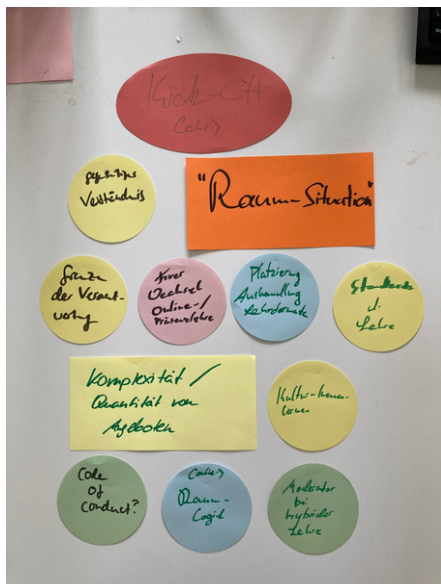 gegenseitiges
Verständnis
"Raum-Situation"
Grenze
der Verant-
wortung
Wechsel
Online-/
Präsenzlehre
Platzierung
Aushandlung
Lehrformate
Standards
d.
Lehre
Komplexität /
Quantität von
Angeboten
Kultur-kennen-
lernen
Code
of
Conduct?
Raum-
Logik
Moderator
bei
hybrider
Lehre